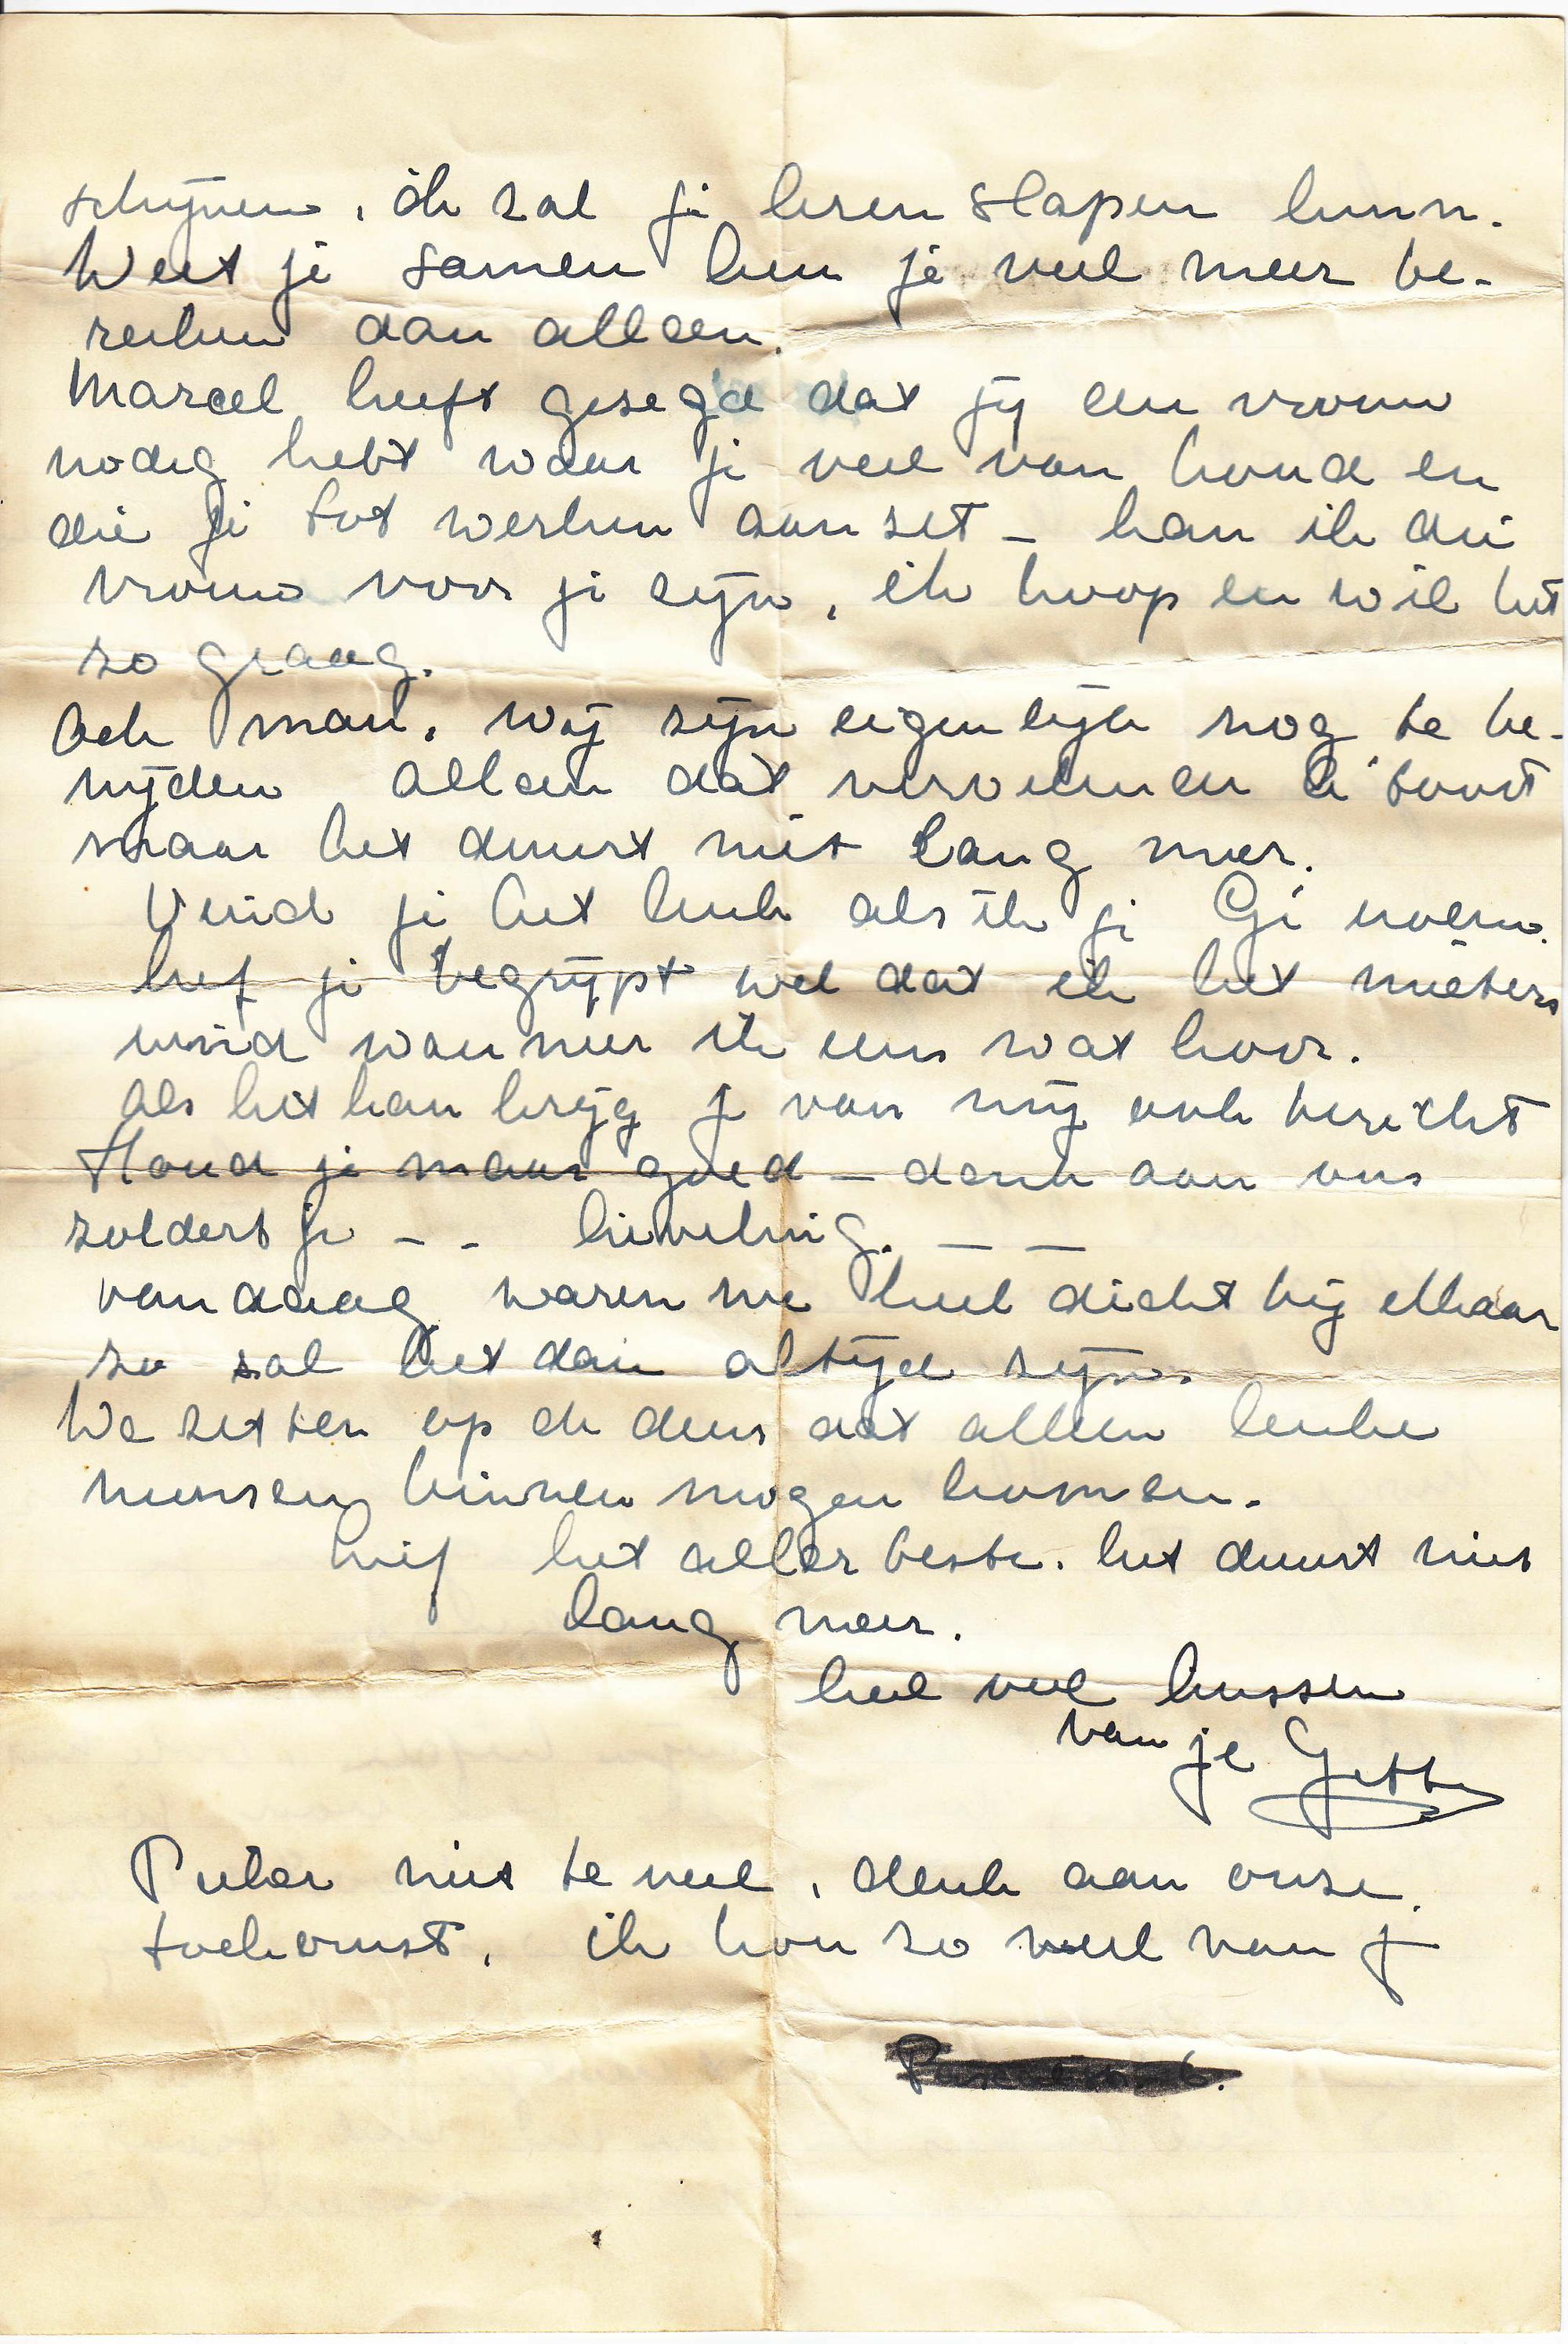 schijnen, ik zal je leren slapen hoor.
Weet je samen kun je veel meer be-
reiken dan alleen.
Marcel heeft gezegd dat jij een vrouw
nodig hebt waar je veel van houd en
die je tot werken aanzet – kan ik die
vrouw voor je zijn, ik hoop en wil het
zo graag.
Och man, wij zijn eigenlijk nog te be-
nijden alleen dat vervelende
maar het duurt niet lang meer.
Vind je het leuk als ik je Gé noem.
lief je begrijpt wel dat ik het mieters
vind wanneer ik eens wat hoor.
als het kan krijg je van mij ook bericht
Houd je maar goed – denk aan ons
zoldertje – – lieveling. – –
vandaag waren we heel dicht bij elkaar
zo zal het dan altijd zijn.
We zetten op de deur dat alleen leuke
mensen binnen mogen komen.
lief het aller beste. het duurt niet
lang meer.
heel veel kussen
van je Getty
Pieker niet te veel, denk aan onze
toekomst, ik hou zo veel van je